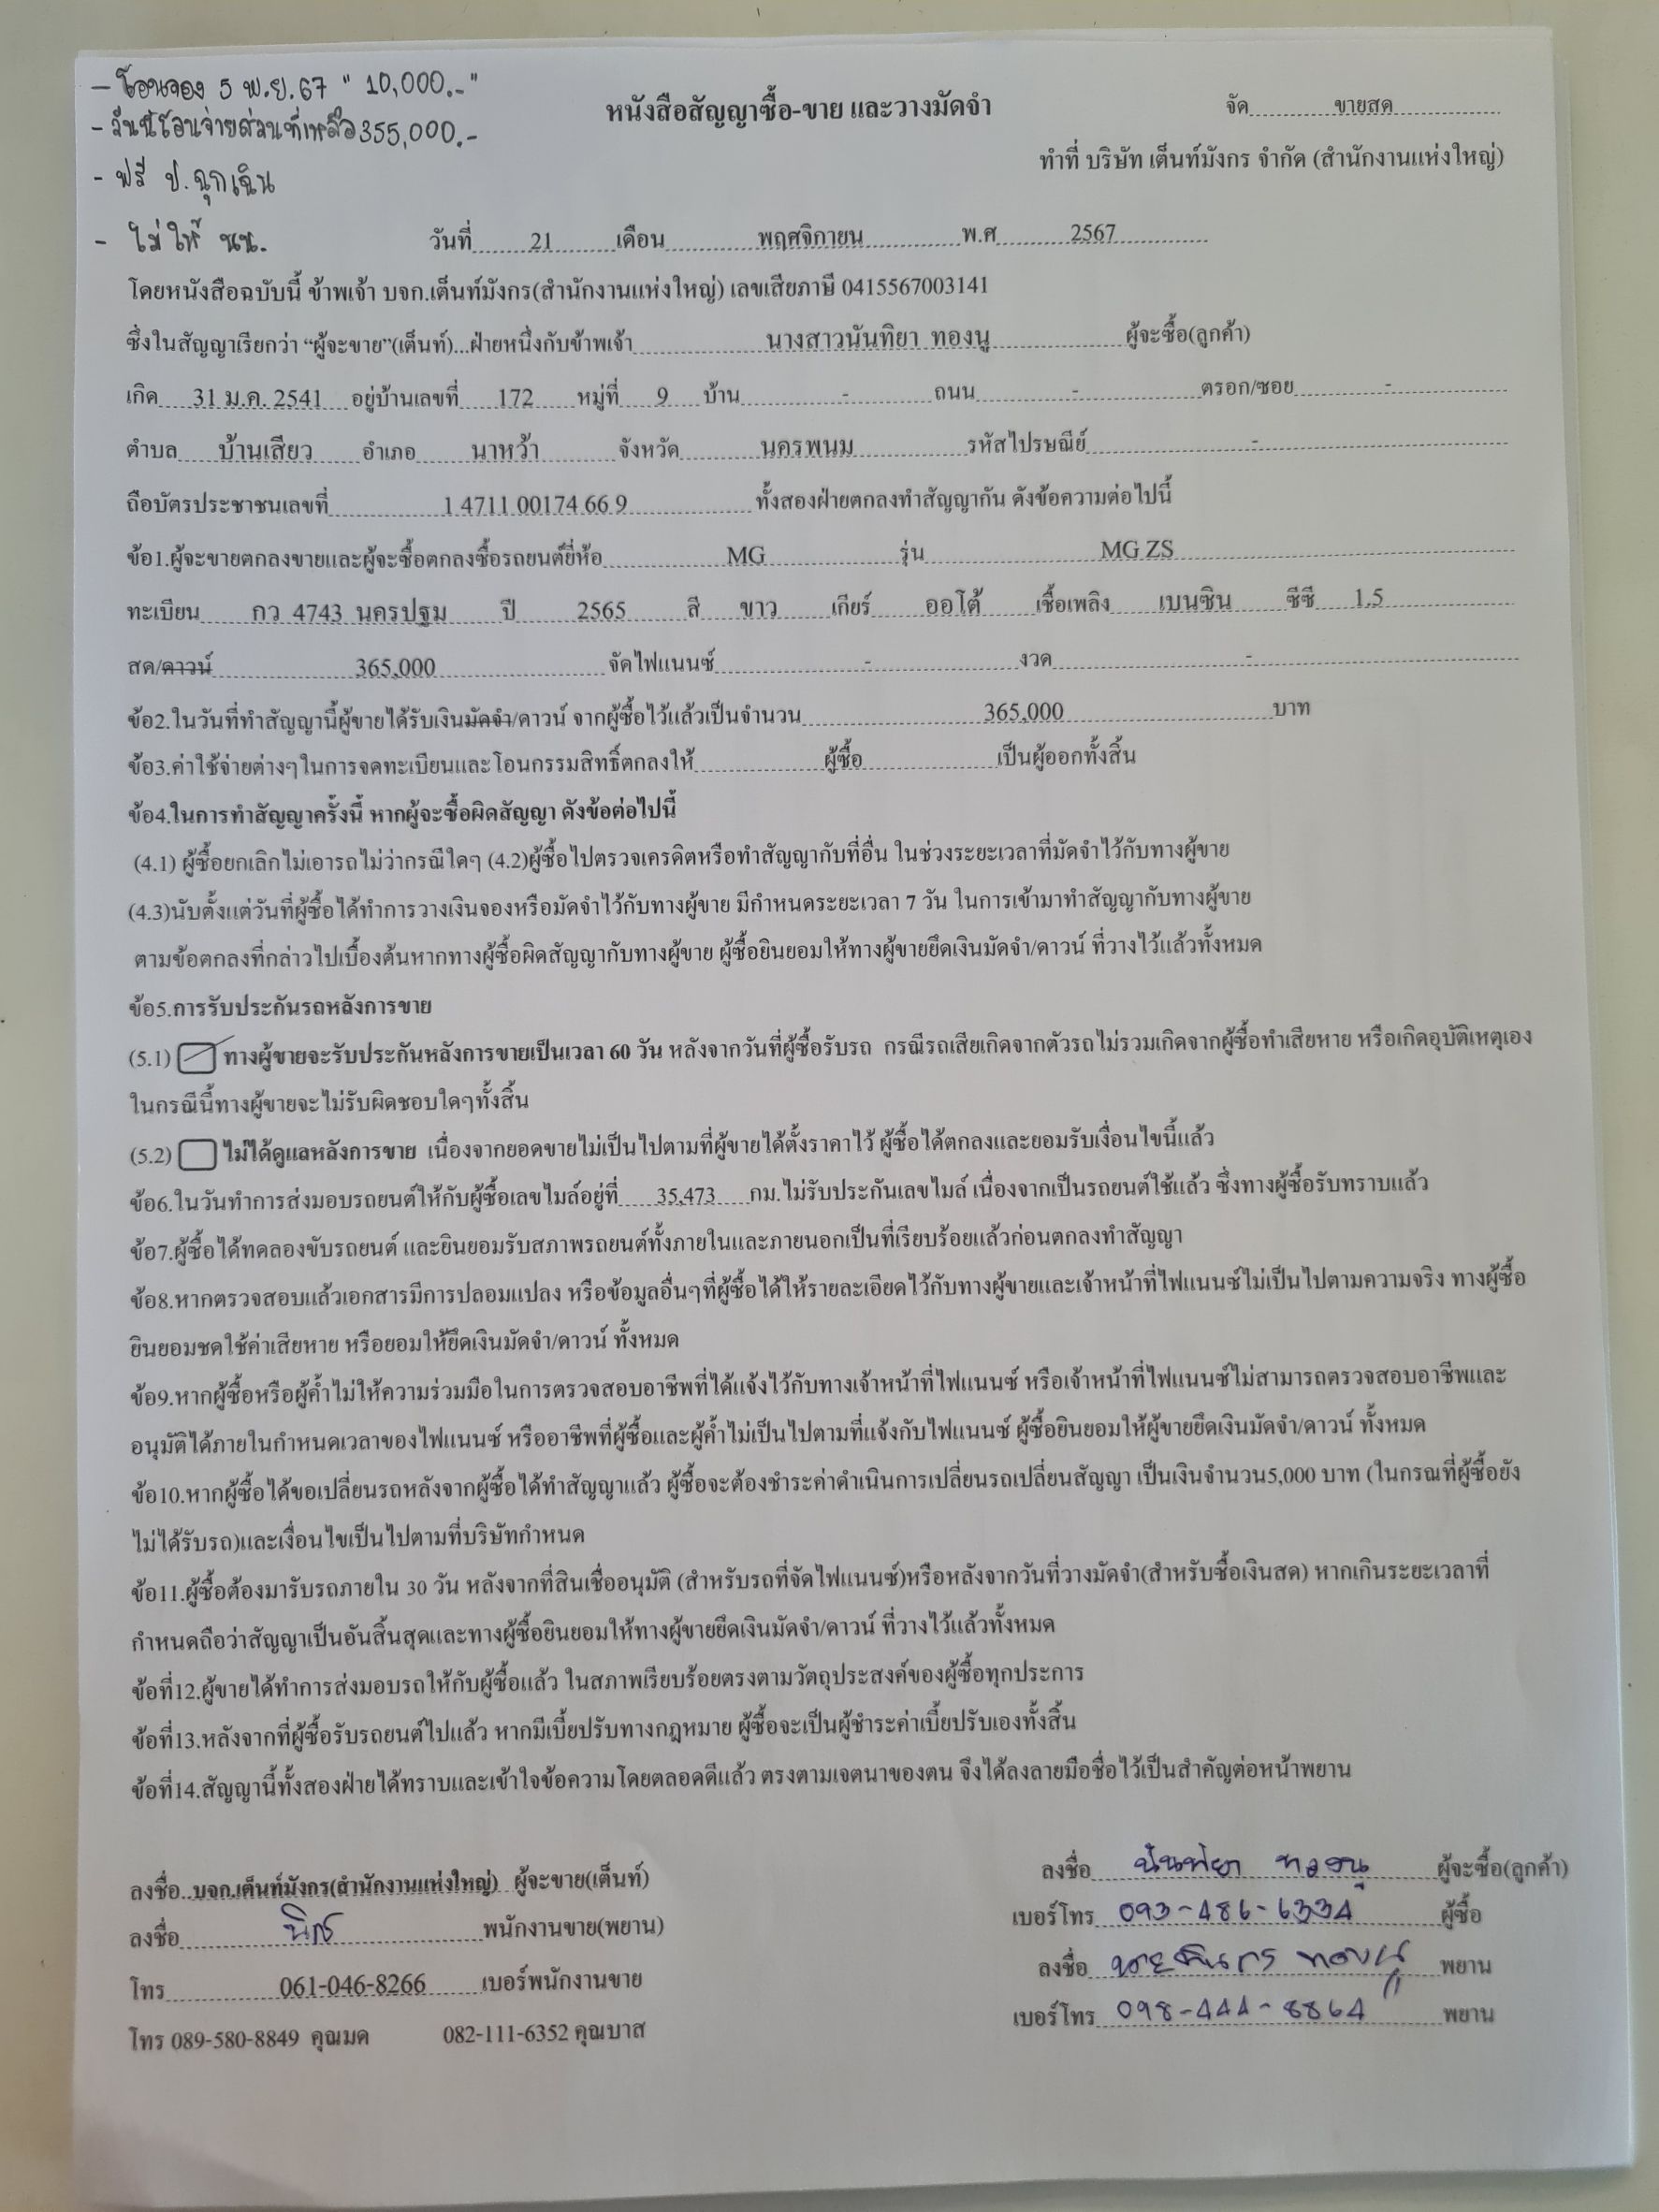 - โอนจอง 5 พ.ย.67 "10,000.-"
- วันนี้โอนจ่ายส่วนที่เหลือ 355,000.-
- ฟรี ป.ฉุกเฉิน
- ไม่ให้ นน.
หนังสือสัญญาซื้อ-ขาย และวางมัดจำ
จัด ขายสด
ทำที่ บริษัท เต็นท์มังกร จำกัด (สำนักงานแห่งใหญ่)
วันที่ 21 เดือน พฤศจิกายน พ.ศ 2567
โดยหนังสือฉบับนี้ ข้าพเจ้า บจก.เต็นท์มังกร(สำนักงานแห่งใหญ่) เลขเสียภาษี 0415567003141
ซึ่งในสัญญาเรียกว่า “ผู้จะขาย”(เต็นท์)...ฝ่ายหนึ่งกับข้าพเจ้า นางสาวนันทิยา ทองนู ผู้จะซื้อ(ลูกค้า)
เกิด 31 ม.ค. 2541 อยู่บ้านเลขที่ 172 หมู่ที่ 9 บ้าน - ถนน - ตรอก/ซอย -
ตำบล บ้านเสียว อำเภอ นาหว้า จังหวัด นครพนม รหัสไปรษณีย์ -
ถือบัตรประชาชนเลขที่ 1 4711 00174 66 9 ทั้งสองฝ่ายตกลงทำสัญญากัน ดังข้อความต่อไปนี้
ข้อ1.ผู้จะขายตกลงขายและผู้จะซื้อตกลงซื้อรถยนต์ยี่ห้อ MG รุ่น MG ZS
ทะเบียน กว 4743 นครปฐม ปี 2565 สี ขาว เกียร์ ออโต้ เชื้อเพลิง เบนซิน ซีซี 1.5
สด/ดาวน์ 365,000 จัดไฟแนนซ์ - งวด -
ข้อ2.ในวันที่ทำสัญญานี้ผู้ขายได้รับเงินมัดจำ/ดาวน์ จากผู้ซื้อไว้แล้วเป็นจำนวน 365,000 บาท
ข้อ3.ค่าใช้จ่ายต่างๆในการจดทะเบียนและโอนกรรมสิทธิ์ตกลงให้ ผู้ซื้อ เป็นผู้ออกทั้งสิ้น
ข้อ4.ในการทำสัญญาครั้งนี้ หากผู้จะซื้อผิดสัญญา ดังข้อต่อไปนี้
(4.1) ผู้ซื้อยกเลิกไม่เอารถไม่ว่ากรณีใดๆ (4.2)ผู้ซื้อไปตรวจเครดิตหรือทำสัญญากับที่อื่น ในช่วงระยะเวลาที่มัดจำไว้กับทางผู้ขาย
(4.3)นับตั้งแต่วันที่ผู้ซื้อได้ทำการวางเงินจองหรือมัดจำไว้กับทางผู้ขาย มีกำหนดระยะเวลา 7 วัน ในการเข้ามาทำสัญญากับทางผู้ขาย
ตามข้อตกลงที่กล่าวไปเบื้องต้นหากทางผู้ซื้อผิดสัญญากับทางผู้ขาย ผู้ซื้อยินยอมให้ทางผู้ขายยึดเงินมัดจำ/ดาวน์ ที่วางไว้แล้วทั้งหมด
ข้อ5.การรับประกันรถหลังการขาย
(5.1) ทางผู้ขายจะรับประกันหลังการขายเป็นเวลา 60 วัน หลังจากวันที่ผู้ซื้อรับรถ กรณีรถเสียเกิดจากตัวรถไม่รวมเกิดจากผู้ซื้อทำเสียหาย หรือเกิดอุบัติเหตุเอง
ในกรณีนี้ทางผู้ขายจะไม่รับผิดชอบใดๆทั้งสิ้น
(5.2) ไม่ได้ดูแลหลังการขาย เนื่องจากยอดขายไม่เป็นไปตามที่ผู้ขายได้ตั้งราคาไว้ ผู้ซื้อได้ตกลงและยอมรับเงื่อนไขนี้แล้ว
ข้อ6.ในวันทำการส่งมอบรถยนต์ให้กับผู้ซื้อเลขไมล์อยู่ที่ 35,473 กม. ไม่รับประกันเลขไมล์ เนื่องจากเป็นรถยนต์ใช้แล้ว ซึ่งทางผู้ซื้อรับทราบแล้ว
ข้อ7.ผู้ซื้อได้ทดลองขับรถยนต์ และยินยอมรับสภาพรถยนต์ทั้งภายในและภายนอกเป็นที่เรียบร้อยแล้วก่อนตกลงทำสัญญา
ข้อ8.หากตรวจสอบแล้วเอกสารมีการปลอมแปลง หรือข้อมูลอื่นๆที่ผู้ซื้อได้ให้รายละเอียดไว้กับทางผู้ขายและเจ้าหน้าที่ไฟแนนซ์ไม่เป็นไปตามความจริง ทางผู้ซื้อ
ยินยอมชดใช้ค่าเสียหาย หรือยอมให้ยึดเงินมัดจำ/ดาวน์ ทั้งหมด
ข้อ9.หากผู้ซื้อหรือผู้ค้ำไม่ให้ความร่วมมือในการตรวจสอบอาชีพที่ได้แจ้งไว้กับทางเจ้าหน้าที่ไฟแนนซ์ หรือเจ้าหน้าที่ไฟแนนซ์ไม่สามารถตรวจสอบอาชีพและ
อนุมัติได้ภายในกำหนดเวลาของไฟแนนซ์ หรืออาชีพที่ผู้ซื้อและผู้ค้ำไม่เป็นไปตามที่แจ้งกับไฟแนนซ์ ผู้ซื้อยินยอมให้ผู้ขายยึดเงินมัดจำ/ดาวน์ ทั้งหมด
ข้อ10.หากผู้ซื้อได้ขอเปลี่ยนรถหลังจากผู้ซื้อได้ทำสัญญาแล้ว ผู้ซื้อจะต้องชำระค่าดำเนินการเปลี่ยนรถเปลี่ยนสัญญา เป็นเงินจำนวน5,000 บาท (ในกรณที่ผู้ซื้อยัง
ไม่ได้รับรถ)และเงื่อนไขเป็นไปตามที่บริษัทกำหนด
ข้อ11.ผู้ซื้อต้องมารับรถภายใน 30 วัน หลังจากที่สินเชื่ออนุมัติ (สำหรับรถที่จัดไฟแนนซ์)หรือหลังจากวันที่วางมัดจำ(สำหรับซื้อเงินสด) หากเกินระยะเวลาที่
กำหนดถือว่าสัญญาเป็นอันสิ้นสุดและทางผู้ซื้อยินยอมให้ทางผู้ขายยึดเงินมัดจำ/ดาวน์ ที่วางไว้แล้วทั้งหมด
ข้อที่12.ผู้ขายได้ทำการส่งมอบรถให้กับผู้ซื้อแล้ว ในสภาพเรียบร้อยตรงตามวัตถุประสงค์ของผู้ซื้อทุกประการ
ข้อที่13.หลังจากที่ผู้ซื้อรับรถยนต์ไปแล้ว หากมีเบี้ยปรับทางกฎหมาย ผู้ซื้อจะเป็นผู้ชำระค่าเบี้ยปรับเองทั้งสิ้น
ข้อที่14.สัญญานี้ทั้งสองฝ่ายได้ทราบและเข้าใจข้อความโดยตลอดดีแล้ว ตรงตามเจตนาของตน จึงได้ลงลายมือชื่อไว้เป็นสำคัญต่อหน้าพยาน
ลงชื่อ บจก.เต็นท์มังกร(สำนักงานแห่งใหญ่) ผู้จะขาย(เต็นท์)
ลงชื่อ พนักงานขาย(พยาน)
โทร 061-046-8266 เบอร์พนักงานขาย
โทร 089-580-8849 คุณมด 082-111-6352 คุณบาส
ลงชื่อ นันทิยา ทองนู ผู้จะซื้อ(ลูกค้า)
เบอร์โทร 093-486-6334 ผู้ซื้อ
ลงชื่อ ทองนู พยาน
เบอร์โทร 098-444-8864 พยาน